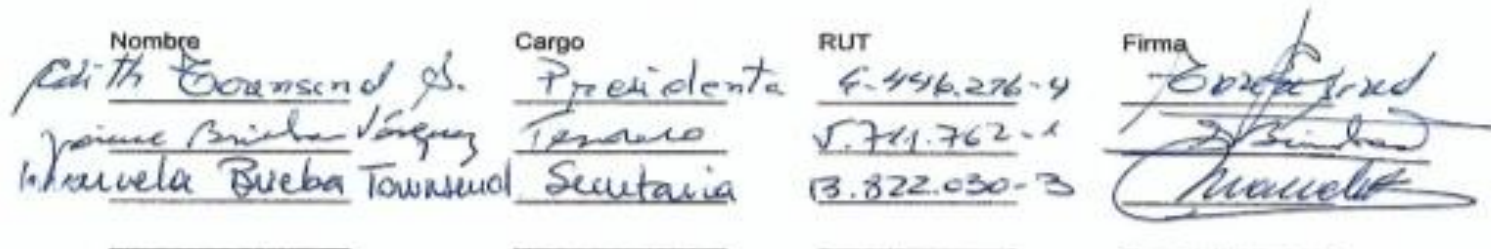 Nombre Cargo RUT Firma
Edith Townsend S. Presidenta 6.446.276-4 Townsend
Jaime Brieba Vásquez Tesorero 5.711.762-1 J Brieba
Manuela Brieba Townsend Secretaria 13.822.030-3 Manuela